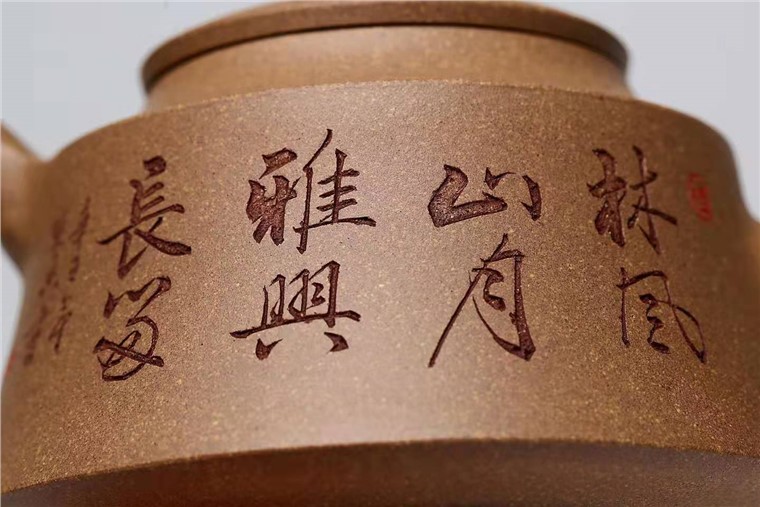 林風
山月
雅興
長留